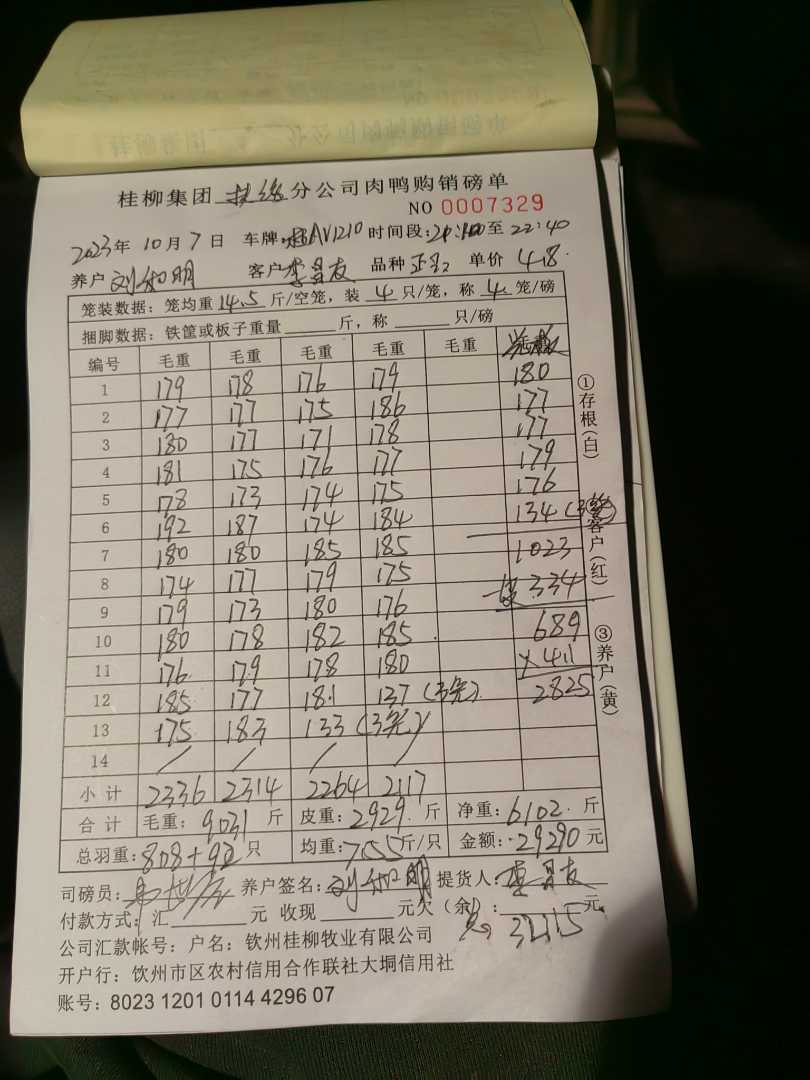 桂柳集团 扶绥 分公司肉鸭购销磅单
NO 0007329
2023年 10月 7日 车牌: 桂AV1210 时间段: 至 22:40
养户 刘和明 客户 李昌友 品种 单价 4.8
笼装数据: 笼均重 14.5 斤/空笼, 装 4 只/笼, 称 4 笼/磅
捆脚数据: 铁筐或板子重量 斤, 称 只/磅
编号 毛重 毛重 毛重 毛重 毛重
1 179 178 176 179 180
2 177 177 175 186 177
3 180 177 171 178 177
4 181 175 176 177 179
5 178 173 174 175 176
6 192 187 174 184 134 (3笼)
7 180 180 185 185 1023
8 174 177 179 175 334
9 179 173 180 176
10 180 178 182 185 689
11 176 179 178 180 ×4.1
12 185 177 181 137 (3笼) 2825
13 175 183 133 (3笼) /
14 / / /
小计 2336 2314 2264 2117
合计 毛重: 9031 斤 皮重: 2929 斤 净重: 6102 斤
总羽重: 808+92 只 均重: 7.55 斤/只 金额: 29290 元
司磅员: 养户签名: 刘和明 提货人: 李昌友
付款方式: 汇 元 收现 元欠 (余): 元
32115
公司汇款帐号: 户名: 钦州桂柳牧业有限公司
开户行: 钦州市区农村信用合作联社大垌信用社
账号: 8023 1201 0114 4296 07
①存根(白)
②客户(红)
③养户(黄)